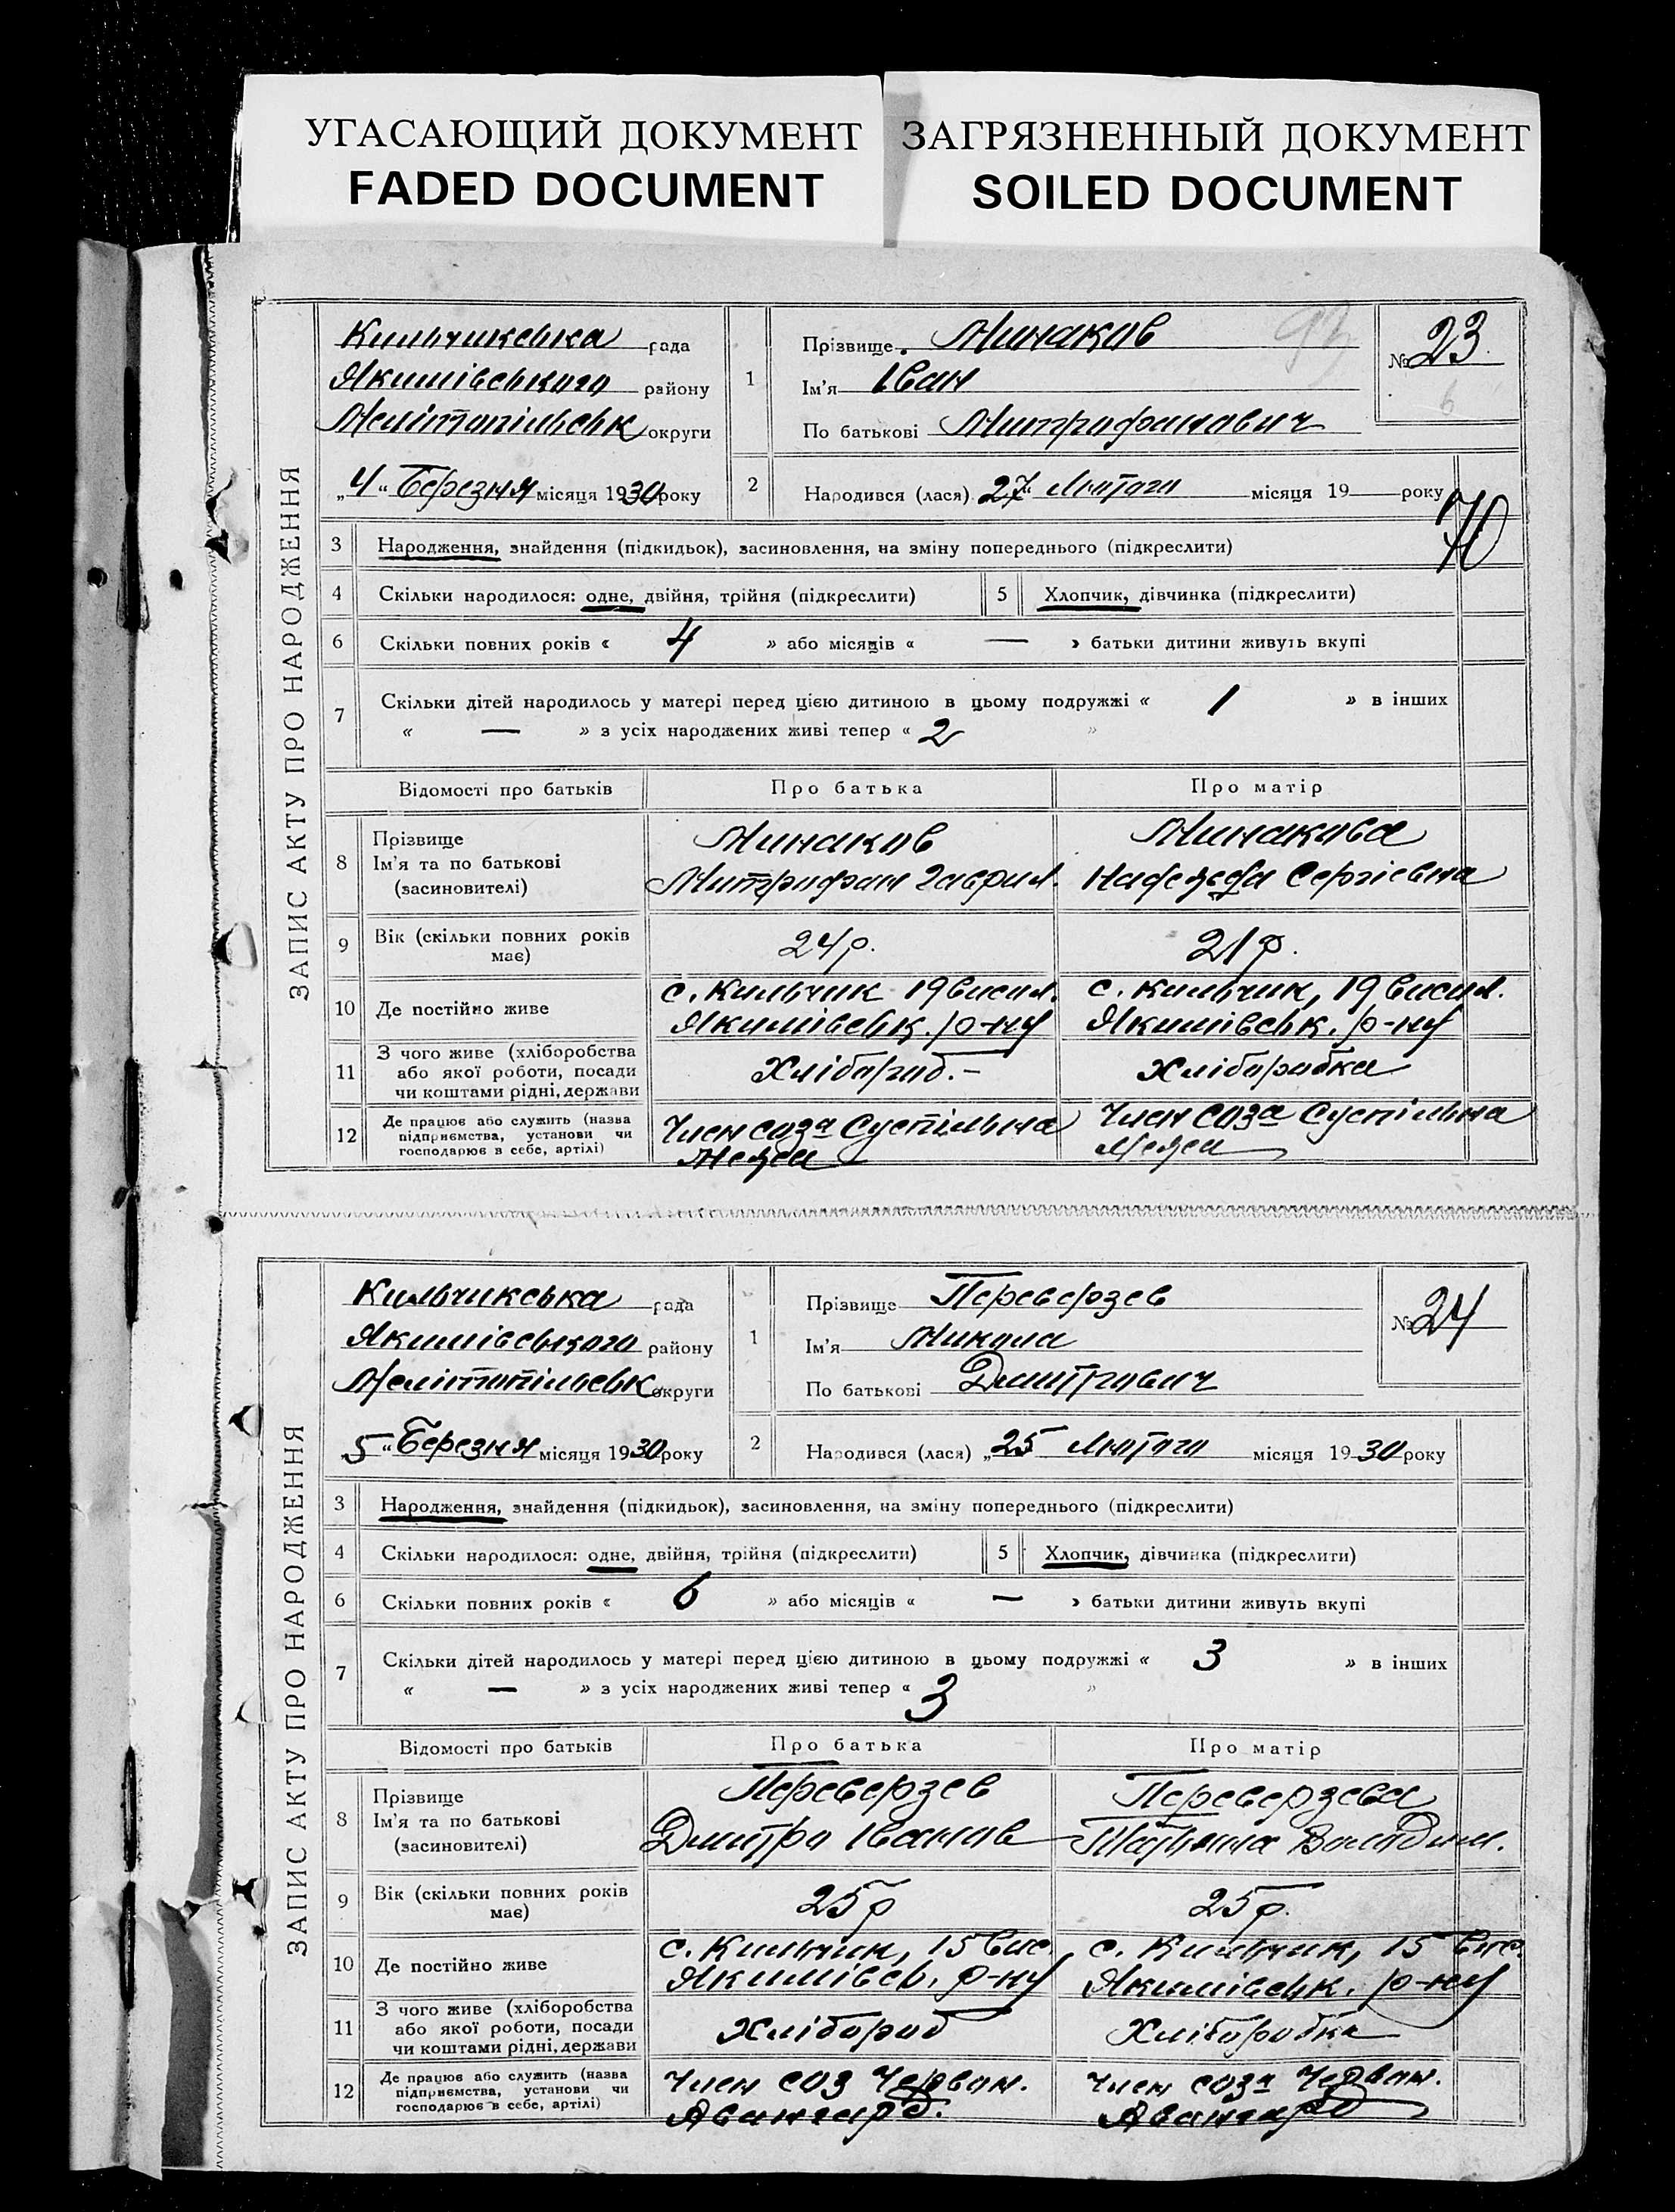 УГАСАЮЩИЙ ДОКУМЕНТ
FADED DOCUMENT
ЗАГРЯЗНЕННЫЙ ДОКУМЕНТ
SOILED DOCUMENT
ЗАПИС АКТУ ПРО НАРОДЖЕННЯ
Кильчикська рада
Якимівського району
Мелітопільськ округи
„4“ Березня місяця 1930 року
1
Прізвище Минаков
Ім'я Іван
По батькові Митрофанович
93
№ 23
6
2
Народився (лася) 27 Лютого місяця 19 — року
70
3 Народження, знайдення (підкидьок), засиновлення, на зміну попереднього (підкреслити)
4 Скільки народилося: одне, двійня, трійня (підкреслити) 5 Хлопчик, дівчинка (підкреслити)
6 Скільки повних років « 4 » або місяців « — » батьки дитини живуть вкупі
7 Скільки дітей народилось у матері перед цією дитиною в цьому подружжі « 1 » в інших
« — » з усіх народжених живі тепер « 2 »
Відомості про батьків Про батька Про матір
8 Прізвище
Ім'я та по батькові
(засиновителі)
Минаков
Митрофан Гаврил.
Минакова
Надежда Сергіевна
9 Вік (скільки повних років має) 24 р. 21 р.
10 Де постійно живе
с. Кильчик 19 висил.
Якимівськ. р-ну
с. Кильчик, 19 висил.
Якимівськ. р-ну
11 З чого живе (хліборобства
або якої роботи, посади
чи коштами рідні, держави
Хлібороб. —
Хлібаробка
12 Де працює або служить (назва
підприємства, установи чи
господарює в себе, артілі)
Член соза Суспільна
Межа
Член соза Суспільна
Межа
ЗАПИС АКТУ ПРО НАРОДЖЕННЯ
Кильчикська рада
Якимівського району
Мелітопільськ округи
„5“ Березня місяця 1930 року
1
Прізвище Переверзев
Ім'я Микола
По батькові Дмитрович
№ 24
2
Народився (лася) „25 Лютого місяця 1930 року
3 Народження, знайдення (підкидьок), засиновлення, на зміну попереднього (підкреслити)
4 Скільки народилося: одне, двійня, трійня (підкреслити) 5 Хлопчик, дівчинка (підкреслити)
6 Скільки повних років « 6 » або місяців « — » батьки дитини живуть вкупі
7 Скільки дітей народилось у матері перед цією дитиною в цьому подружжі « 3 » в інших
« — » з усіх народжених живі тепер « 3 »
Відомості про батьків Про батька Про матір
8 Прізвище
Ім'я та по батькові
(засиновителі)
Переверзев
Дмитро Іванов
Переверзева
Татьяна Володим.
9 Вік (скільки повних років має) 25 р 25 р.
10 Де постійно живе
с. Кильчик, 15 вис.
Якимівсь. р-ну
с. Кильчик, 15 вис.
Якимівськ. р-ну
11 З чого живе (хліборобства
або якої роботи, посади
чи коштами рідні, держави
Хлібороб
Хліборобка
12 Де працює або служить (назва
підприємства, установи чи
господарює в себе, артілі)
Член соз Червон.
Авангард.
Член соза Червон.
Авангард